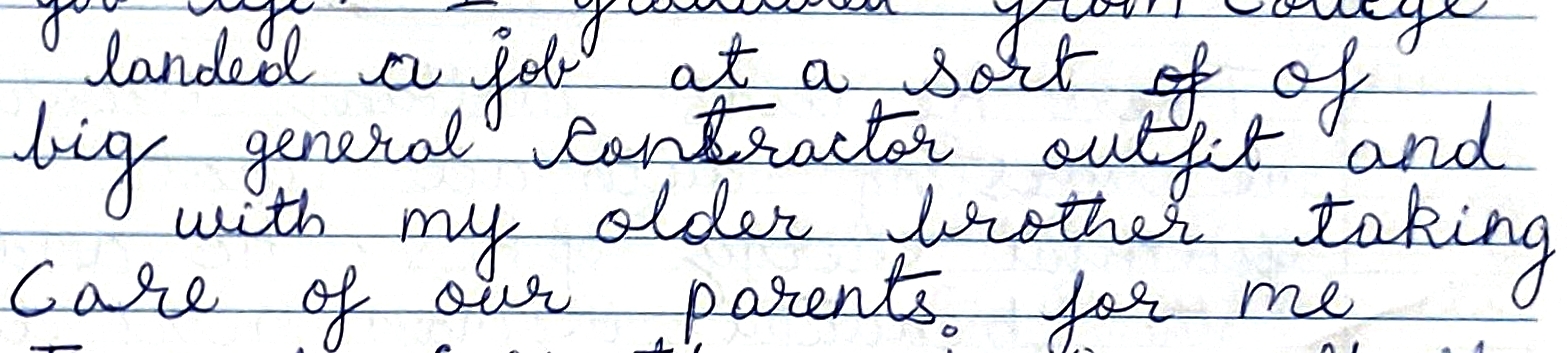 I graduated from college
landed a job at a sort of of
big general contractor outfit and
with my older brother taking
Care of our parents. for me